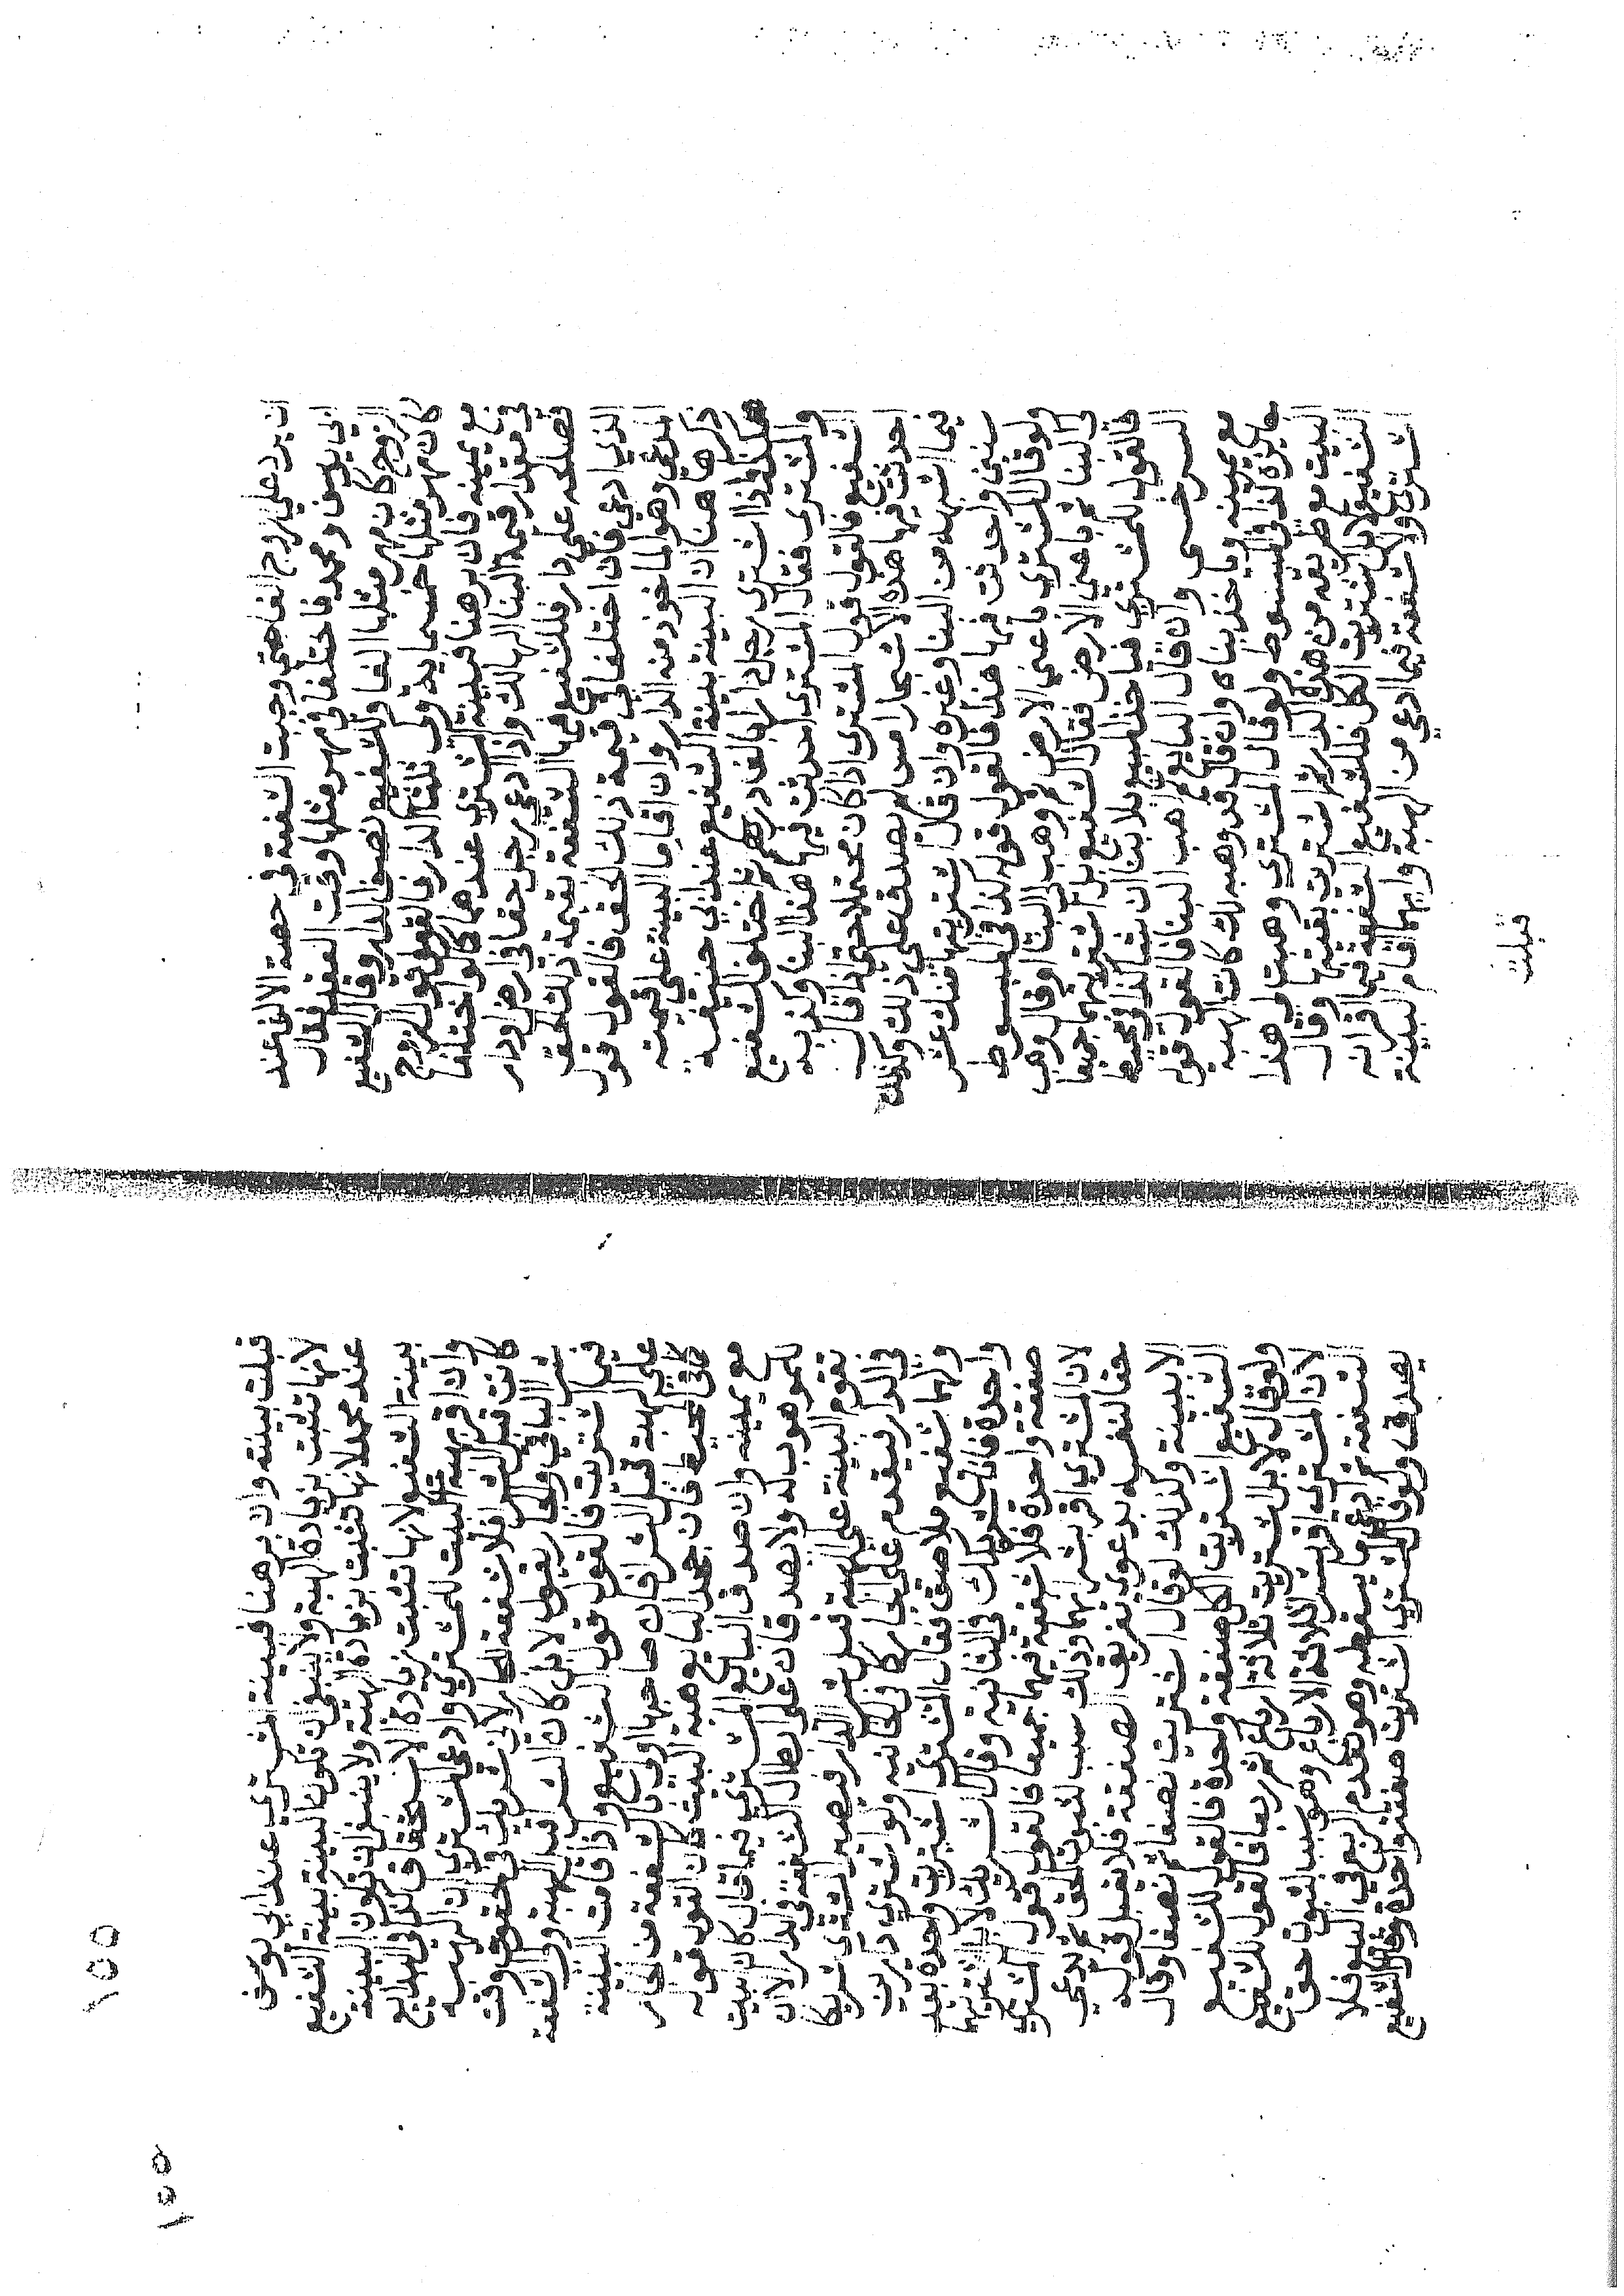 ان يرد على زوج الفا حتى وجبت الشفعة في حصة الالف عند
ابي يوسف ومحمد فاختلفا في مهر مثلها وقت العقد فقال
الزوج كان مهر مثلها الفا وللشفيع نصف الدار وقال الشفيع
كان مهر مثلها خمسماية ولي ثلثا الدار فالقول قول الزوج
مع يمينه فان برهنا فبينة المشتري عندهما كما لو اختلفا
في مقدار قيمة البنا الهالك واذا ادعى رجل حقا في ارض او دار
فصالحه على دار فللشفيع فيها الشفعة بقيمة ذلك الحق
الذي ادعى فان اختلفا في قيمة ذلك الحق فالقول قول
المدعي وهو الماخوذ منه الدار وان اقاما البينة على قيمته
ذكر ها هنا ان البينة بينة الشفيع عند ابي حنيفة
هكذا واذا اشترى رجل دارا بالف درهم ثم اختلف الشفيع
والمشتري فقال المشتري احدثت فيها هذا البنا وكذبه
الشفيع فالقول قول المشتري اذا كان محتملا حتى اذا قال
احدثت فيها هذه الاشجار امس لم يصدق على ذلك وكذلك
فيما اشبهه من البنا وغيره وان قال اشتريتها منذ عشر
سنين واحدثت فيها هذا فالقول قوله كذا في المبسوط
ولو قال المشتري باعني الارض ثم وهب لي البنا او قال وهب
لي البنا ثم باعني الارض فقال الشفيع بل اشتريتهما جميعا
فالقول للمشتري فياخذ الشفيع بلا بنا ان شا كذا في محيط
السرخسي وان قال البايع لم اهب البنا فالقول قوله
مع يمينه وياخذ بناه وان قال قد وهبه لك كانت الهبة
جايزة كذا في المبسوط ولو قال المشتري وهبت لي هذا
البيت مع طريقه من هذه الدار ثم اشتريت بقيتها وقال
الشفيع لا بل اشتريت الكل فللشفيع الشفعة فيما اقر انه
اشترى ولا شفعة فيما ادعى من الهبة وايهما اقام البينة
قبلت
قبلت بينته وان برهنا فبينة المشتري عند ابي يوسف
لانها تثبت بزيادة الهبة ولا ينبغي ان تكون البينة بينة الشفيع
عند محمد لانها تثبت بزيادة الهبة ولا ينبغي ان تكون البينة
بينة الشفيع لانها تثبت زيادة الاستحقاق كذا في البدايع
وان اقر بهبة البيت للمشتري وادعى المشتري ان الهبة
كانت قبل الشرا فلا شفعة للجار لاني شريك في الحقوق وقت
شرا الباقي والجار يقول لا بل كان الشرا قبل الهبة ولي الشفعة
فيما اشتريت فالقول قول الشفيع واذا قامت البينة
على الهبة قبل الشرا فان صاحبها اولى بالشفعة من الجار
كذا في المحيط فان جحد البايع هبة البيت كان القول قوله
مع يمينه وان صدق البايع المشتري فيما قال كان البيت
للموهوب له ولا يصدقان على ابطال الشفعة في الدار الا ان
تقوم البينة على الهبة قبل شرا الدار فيصير المشتري شريكا
في الدار فيقدم على الجار كذا في الخانية ولو اشترى دارين
ولهما شفيع ملاصق فقال المشتري اشتريت واحدة بعد
واحدة فانا شريكك في الثانية وقال الشريك لا بل اشتريتهما
صفقة واحدة فلا شفعة فيهما جميعا فالقول قول المشتري
لان المشتري اقر بشرايهما وذلك سبب لثبوت الحق ثم يدعي
حقا لنفسه بدعوى تفريق الصفقة فلا يقبل قوله
الا ببينة وكذلك لو قال اشتريت نصفا ثم نصفا وقال
الشفيع اشتريت الكل صفقة واحدة فالقول للشفيع
ولو قال لا بل اشتريت ثلاثة ارباع ثم ربعا فالقول للشفيع
لان المشتري اقر بشرا ثلاثة الارباع وهو سبب لثبوت حق
الشفعة ثم ادعى ما يسقطه وهو تقدم الربع في البيع فلا
يصدق ولو قال المشتري اشتريت صفقة واحدة وقال الشفيع
١٥٥
١٥٥